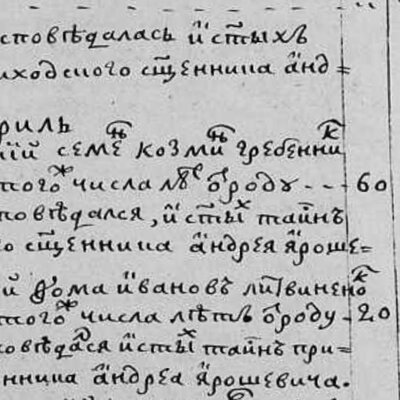 споведалась и҆ ст҃ыхъ
иходского сщ҃енника а҆нд=
риль
ній семеⷩ҇ козмиⷩ҇ гребенниⷦ҇
того ж числа лѣⷮ ѿ роду - - - 60
поведался, и҆ ст҃ыⷯ тайнъ
о сщ҃енника а҆ндрея ꙗ҆роше=
й ѳома и҆вановъ литвиненоⷦ҇
того ж числа лѣтъ ѿ роду - 20
оведаⷧся и҆ ст҃ыⷯ тайнъ при=
нника а҆ндреа ꙗ҆рошевича.